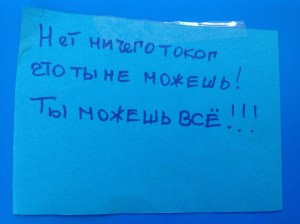 Нет ничего токог
что ты не можешь!
Ты можешь всё!!!